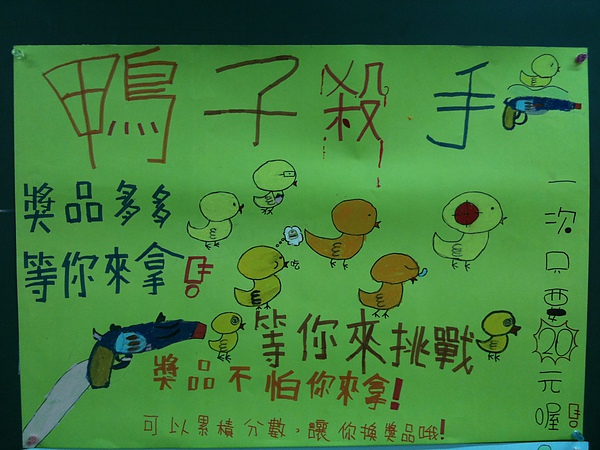 鴨子殺手
獎品多多
等你來拿!
吃
一次只要20元喔!
等你來挑戰
獎品不怕你來拿!
可以累積分數,讓你換獎品哦!